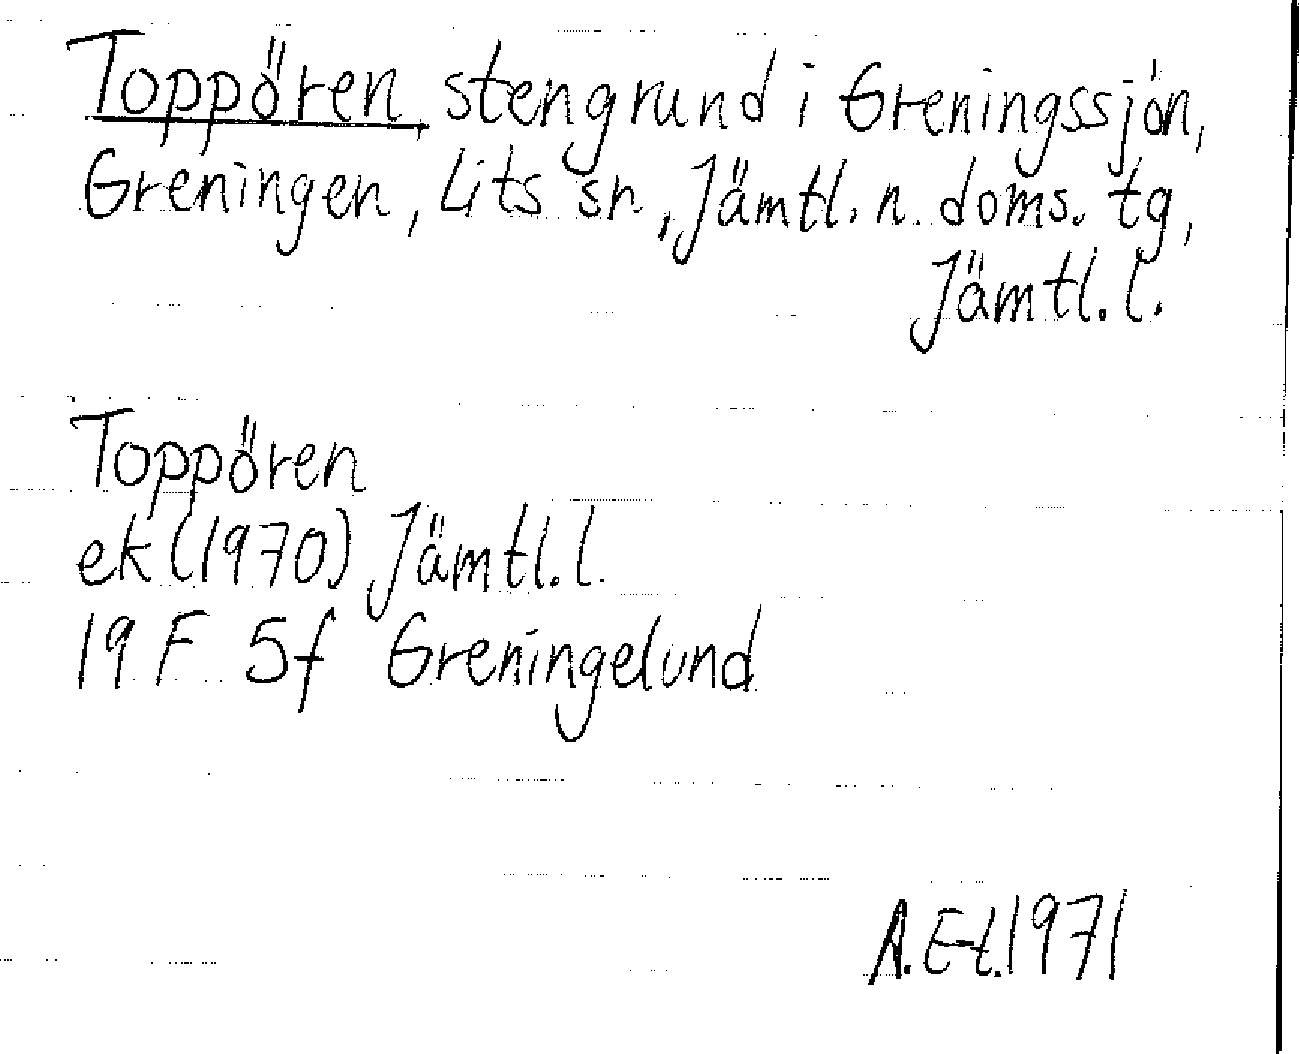 Toppören, stengrund i Greningssjön,
Greningen, Lits sn, Jämtl. n. doms. tg,
Jämtl. l.
Toppören
ek (1970) Jämtl. l.
19 F 5f Greningelund
A. E-t. 1971